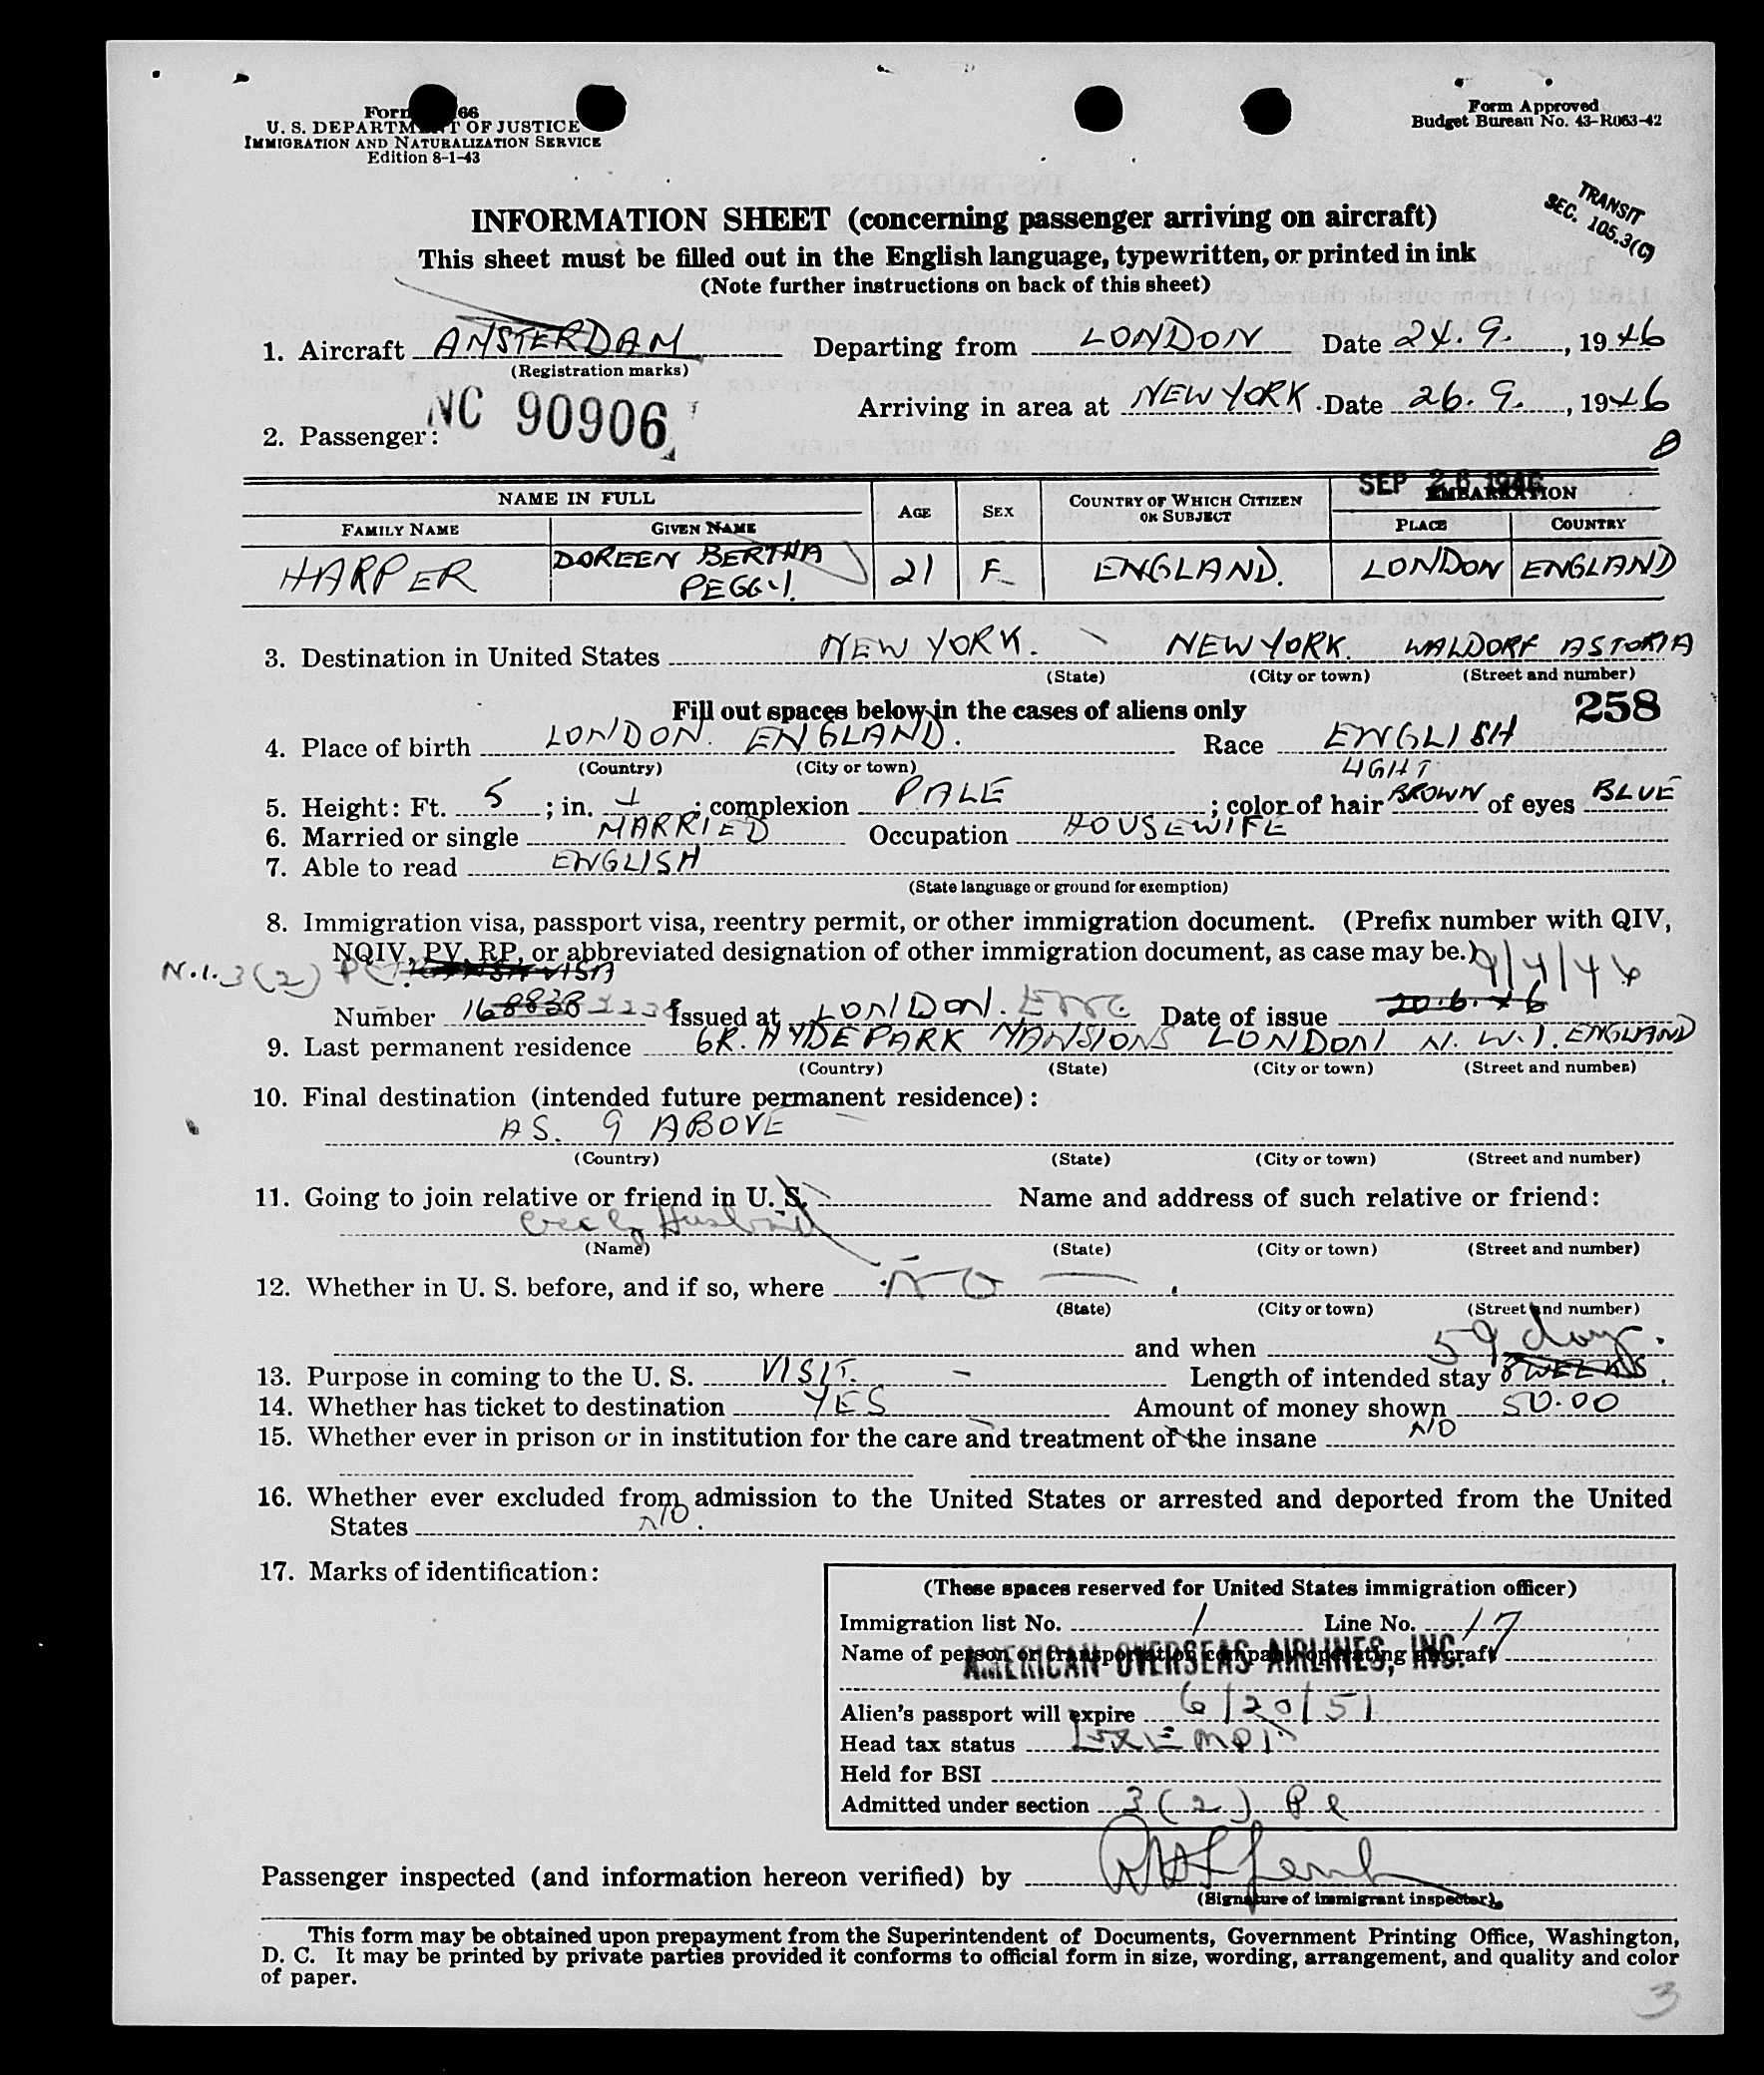 Form 66
U. S. DEPARTMENT OF JUSTICE
IMMIGRATION AND NATURALIZATION SERVICE
Edition 8-1-43
Form Approved
Budget Bureau No. 43-R063-42
TRANSIT
SEC. 105.3(C)
INFORMATION SHEET (concerning passenger arriving on aircraft)
This sheet must be filled out in the English language, typewritten, or printed in ink
(Note further instructions on back of this sheet)
1. Aircraft AMSTERDAM Departing from LONDON Date 24.9. , 1946
(Registration marks)
NC 90906
Arriving in area at NEW YORK . Date 26.9. , 1946
2. Passenger:
8
SEP 26 1946
NAME IN FULL AGE SEX COUNTRY OF WHICH CITIZEN OR SUBJECT EMBARKATION
FAMILY NAME GIVEN NAME PLACE COUNTRY
HARPER DOREEN BERTHA PEGGY. 21 F ENGLAND. LONDON ENGLAND
3. Destination in United States NEW YORK. NEW YORK. WALDORF ASTORIA
(State) (City or town) (Street and number)
Fill out spaces below in the cases of aliens only
258
4. Place of birth LONDON. ENGLAND. Race ENGLISH
(Country) (City or town)
5. Height: Ft. 5 ; in. 1 ; complexion PALE ; color of hair LIGHT BROWN of eyes BLUE
6. Married or single MARRIED Occupation HOUSEWIFE
7. Able to read ENGLISH
(State language or ground for exemption)
8. Immigration visa, passport visa, reentry permit, or other immigration document. (Prefix number with QIV,
NQIV, PV, RP, or abbreviated designation of other immigration document, as case may be.)
N.I. 3(2) VISA
Number Issued at LONDON. ENG Date of issue 20.6.46
9. Last permanent residence 6R. HYDE PARK MANSIONS LONDON N.W.1. ENGLAND
(Country) (State) (City or town) (Street and number)
10. Final destination (intended future permanent residence):
AS. 9 ABOVE
(Country) (State) (City or town) (Street and number)
11. Going to join relative or friend in U. S. Name and address of such relative or friend:
Husband
(Name) (State) (City or town) (Street and number)
12. Whether in U. S. before, and if so, where NO
(State) (City or town) (Street and number)
and when
59 days.
13. Purpose in coming to the U. S. VISIT. Length of intended stay 8 WEEKS
14. Whether has ticket to destination YES Amount of money shown 50.00
15. Whether ever in prison or in institution for the care and treatment of the insane NO
16. Whether ever excluded from admission to the United States or arrested and deported from the United
States NO.
17. Marks of identification:
(These spaces reserved for United States immigration officer)
Immigration list No. 1 Line No. 17
Name of person or transportation company operating aircraft
AMERICAN OVERSEAS AIRLINES, INC.
Alien's passport will expire 6/20/51
Head tax status EXEMPT
Held for BSI
Admitted under section 3(2)
Passenger inspected (and information hereon verified) by
(Signature of immigrant inspector)
This form may be obtained upon prepayment from the Superintendent of Documents, Government Printing Office, Washington,
D. C. It may be printed by private parties provided it conforms to official form in size, wording, arrangement, and quality and color
of paper.
3